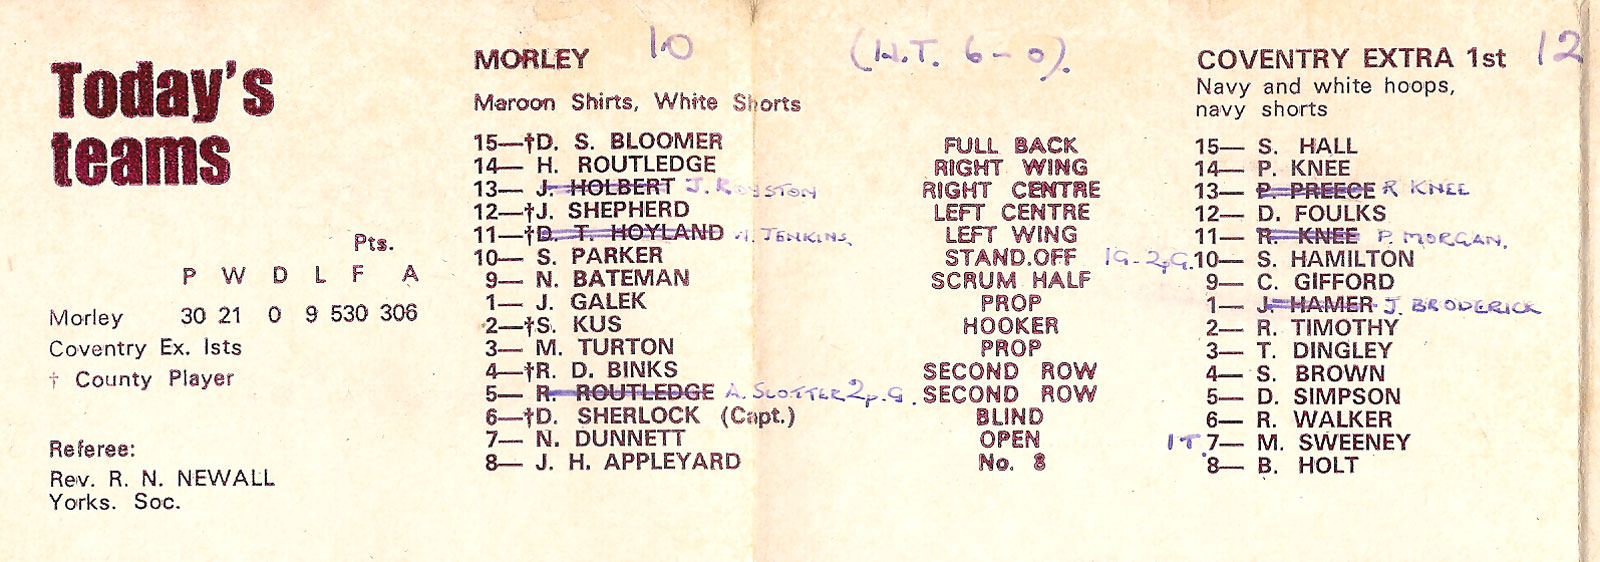 Today's
teams
Pts.
P W D L F A
Morley 30 21 0 9 530 306
Coventry Ex. Ists
† County Player
Referee:
Rev. R. N. NEWALL
Yorks. Soc.
MORLEY 10
Maroon Shirts, White Shorts
15—†D. S. BLOOMER
14— H. ROUTLEDGE
13— J. HOLBERT J. ROYSTON
12—†J. SHEPHERD
11—†D. T. HOYLAND A. JENKINS.
10— S. PARKER
9— N. BATEMAN
1— J. GALEK
2—†S. KUS
3— M. TURTON
4—†R. D. BINKS
5— R. ROUTLEDGE A. SLOTTER 2p.G.
6—†D. SHERLOCK (Capt.)
7— N. DUNNETT
8— J. H. APPLEYARD
(H.T. 6-0).
FULL BACK
RIGHT WING
RIGHT CENTRE
LEFT CENTRE
LEFT WING
STAND.OFF
SCRUM HALF
PROP
HOOKER
PROP
SECOND ROW
SECOND ROW
BLIND
OPEN
No. 8
COVENTRY EXTRA 1st 12
Navy and white hoops,
navy shorts
15— S. HALL
14— P. KNEE
13— P. PREECE R KNEE
12— D. FOULKS
11— R. KNEE P. MORGAN.
1G-2pG. 10— S. HAMILTON
9— C. GIFFORD
1— J. HAMER J. BRODERICK
2— R. TIMOTHY
3— T. DINGLEY
4— S. BROWN
5— D. SIMPSON
6— R. WALKER
1T. 7— M. SWEENEY
8— B. HOLT